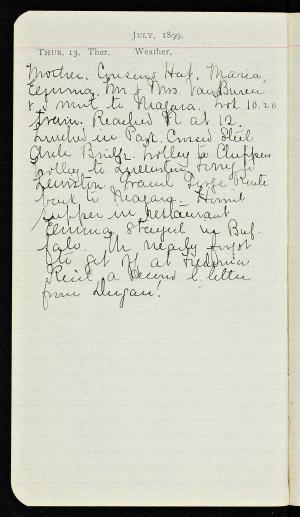 JULY, 1899.
THUR. 13. Ther. Weather,
Mother, Cousins Hat, Maria,
Emma, Mr & Mrs Van Buren
& I went to Niagara. Took 10.20
train. Reached N. at 12.
Lunched in Park. Crossed Steel
Arch Bridge. Trolley to Chippewa
Trolley to Queenston Ferry to
Lewiston. Grand Gorge Route
back to Niagara.
supper in restaurant
Emma Stayed in Buf-
falo. We nearly forgot
to get off at Fredonia.
Rec'd a second letter
from Dugan!